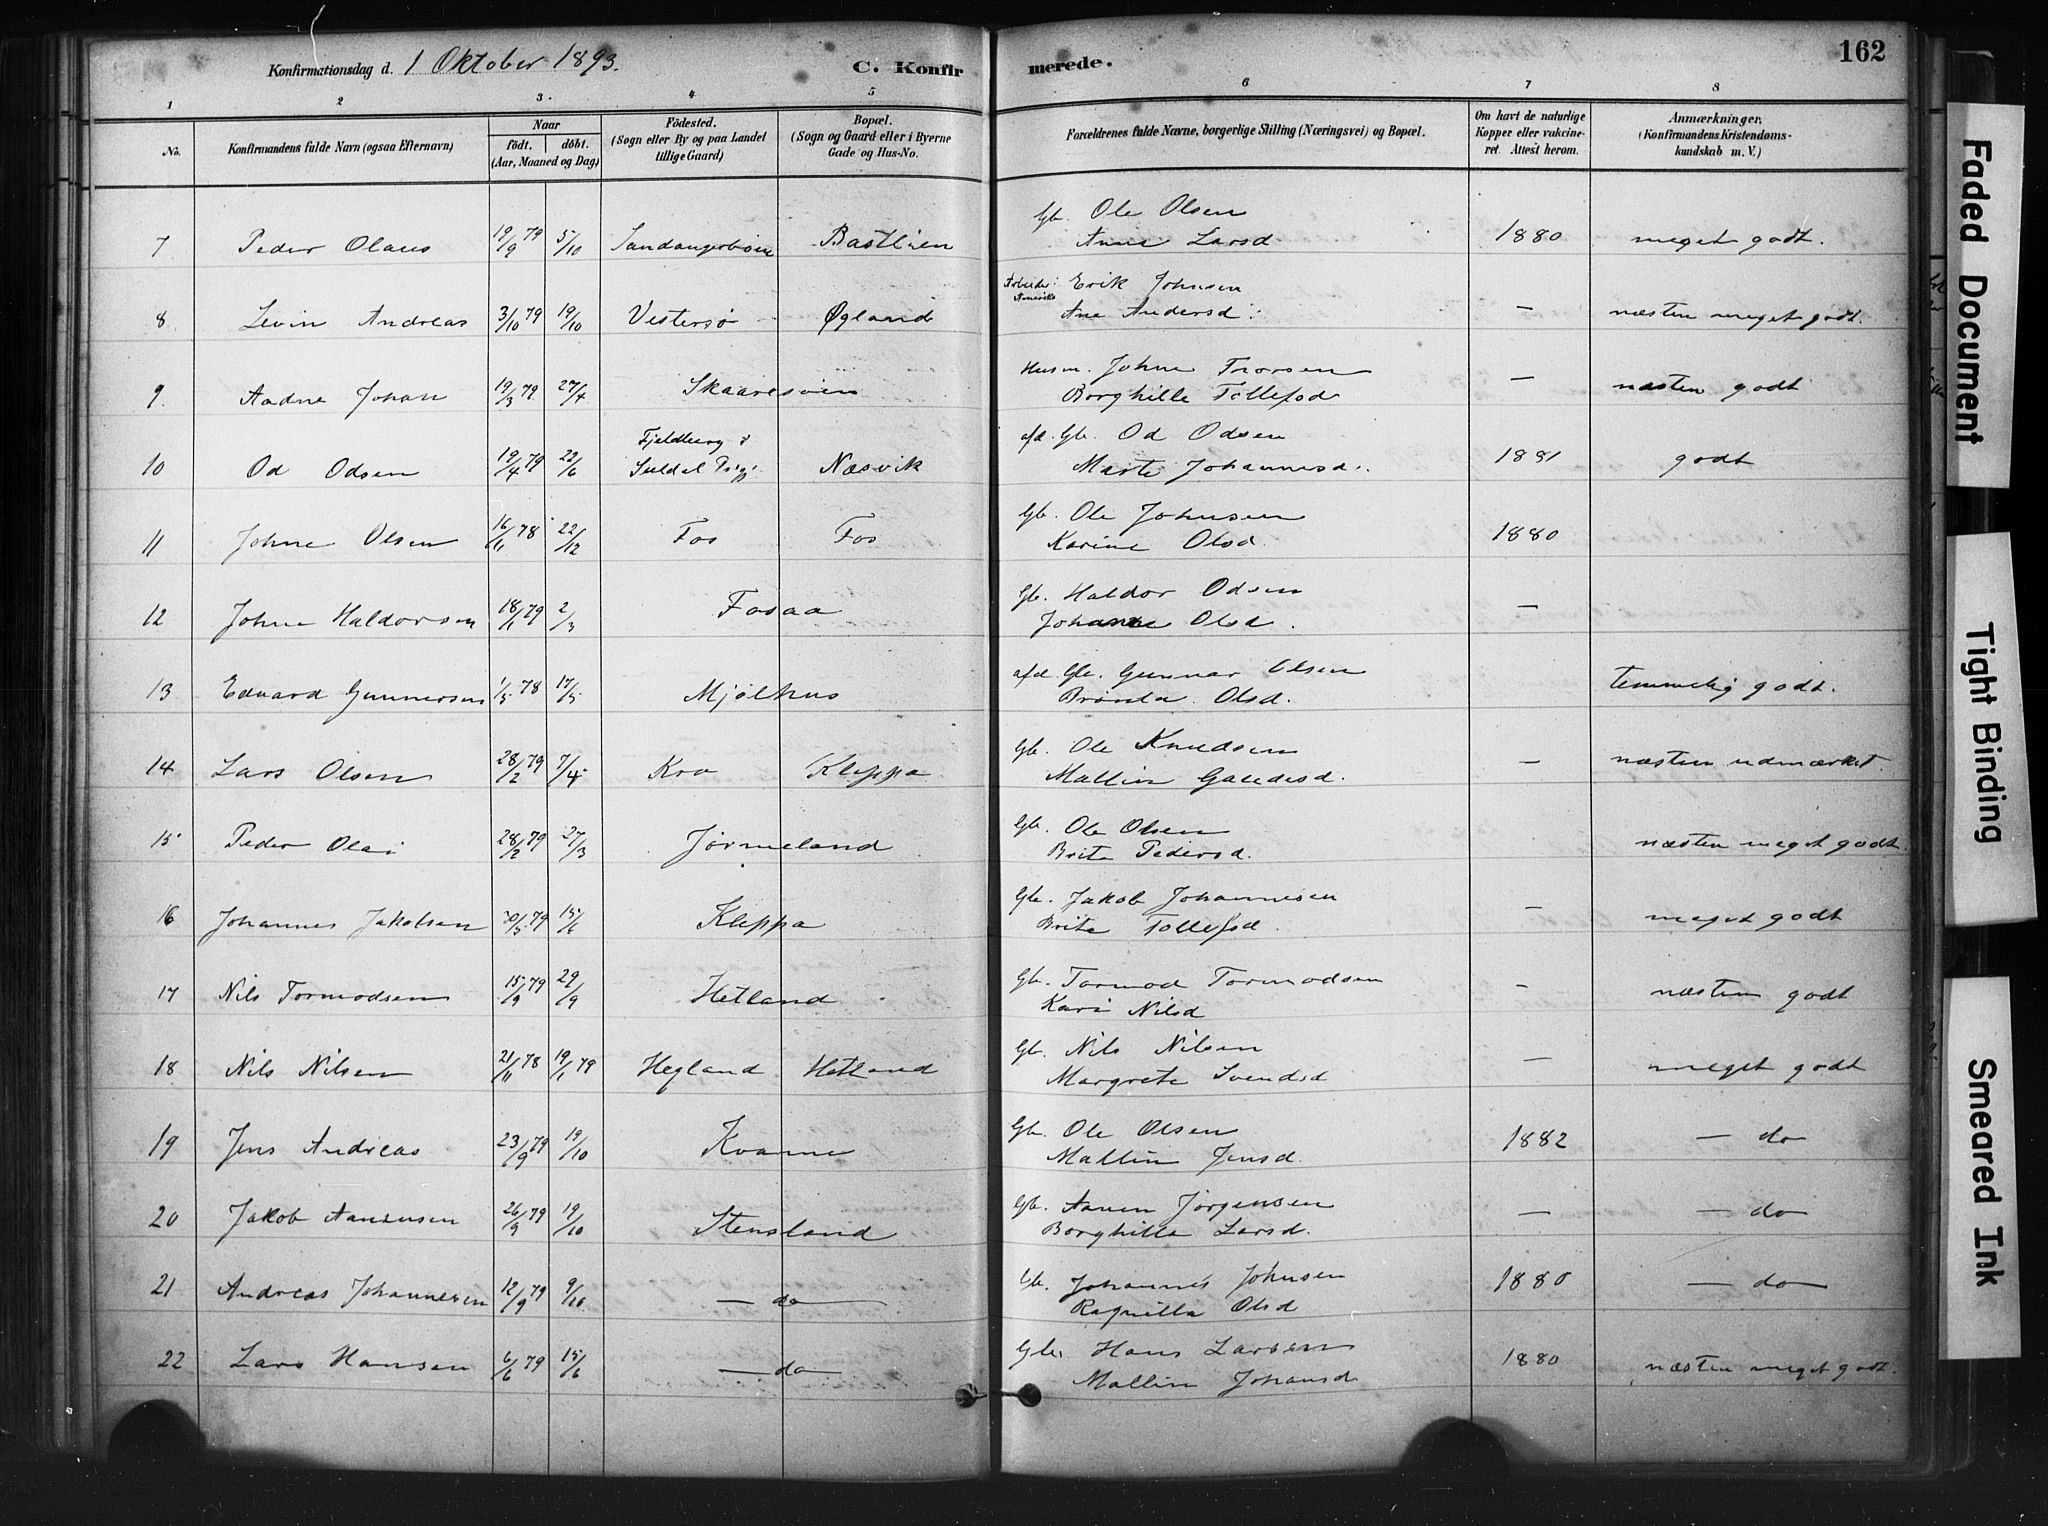 Konfirmationsdag d. 1 Oktober 1893. C. Konfirmerede. 162
1 2 3. 4 5 6 7 8
No. Konfirmandens fulde Navn (ogsaa Efternavn) Naar födt. döbt. (Aar, Maaned og Dag) Födested. (Sogn eller By og paa Landet tillige Gaard) Bopæl. (Sogn og Gaard eller i Byerne Gade og Hus-No. Forældrenes fulde Navne, borgerlige Stilling (Næringsvei) og Bopæl. Om havt de naturlige Kopper eller vakcineret. Attest herom. Anmærkninger. (Konfirmandens Kristendomskundskab m. V.)
7 Peder Olaus 19/9 79 5/10 Bastlien Gb. Ole Olsen
Anna Larsd 1880 meget godt.
8 Levin Andreas 3/10 79 19/10 Vestersø Øgland Arbeider Erik Johnsen
Ane Andersd. — næsten meget godt.
9. Aadne Johan 19/3 79 27/4 Skaaresøien Husm. Johne
Borghille Tollefsd — næsten godt
10 Od Odsen 19/4 79 22/6 Fjeldberg i
Suldal Næsvik afd. Gb. Od Odsen
Marte Johannesd. 1881 godt
11 Johne Olsen 16/11 78 22/12 Fos Fos Gb. Ole Johnsen
Karine Olsd. 1880
12 Johne Haldorsen 18/1 79 2/3 Fosaa Gb. Haldor Odsen
Johanne Olsd. —
13 Edvard Gunnersen 1/5 78 17/5 Mjølhus afd. Gb. Gunnar Olsen
Brønla Olsd. temmelig godt.
14 Lars Olsen 28/2 79 7/4 Kro Kleppa Gb. Ole Knudsen
Mallin Gaudesd. — næsten udmærket.
15 Peder Olai 28/2 79 27/3 Jørmeland Gb. Ole Olsen
Brita Pedersd. næsten meget godt.
16 Johannes Jakobsen 30/5 79 15/6 Kleppa Gb. Jakob Johannesen
Brita Tollefsd. — meget godt
17 Nils Tormodsen 15/9 79 29/9 Hetland Gb. Tormod Tormodsen
Kari Nilsd — næsten godt
18 Nils Nilsen 21/11 78 19/1 79 Hegland Hetland Gb. Nils Nilsen
Margrete Svendsd — meget godt
19 Jens Andreas 23/9 79 19/10 Kvame Gb. Ole Olsen
Mallin Jensd. 1882 — do
20 Jakob Aanensen 26/9 79 19/10 Stensland Gb. Aanen Jørgensen
Borghilla Larsd. — — do
21 Andreas Johannesen 12/9 79 9/10 — do — Gb. Johannes Johnsen
Ragnilla Olsd 1880 — do —
22 Lars Hansen 6/6 79 15/6 — do — Gb. Hans Larsen
Mallin Johansd 1880 næsten meget godt.
Faded Document
Tight Binding
Smeared Ink